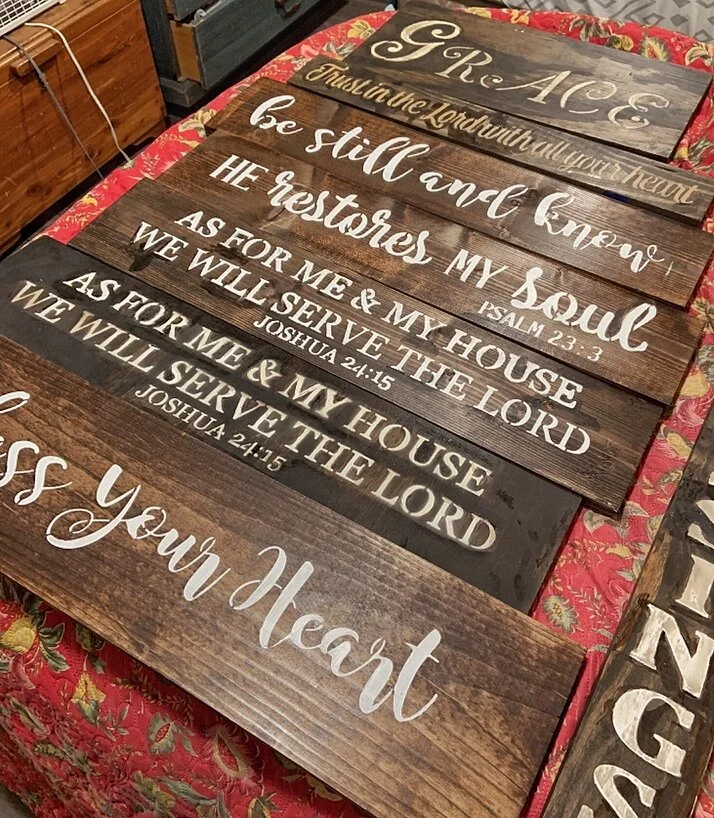 GRACE
Trust in the Lord with all your heart
be still and know,
HE restores MY soul
PSALM 23:3
AS FOR ME & MY HOUSE
WE WILL SERVE THE LORD
JOSHUA 24:15
AS FOR ME & MY HOUSE
WE WILL SERVE THE LORD
JOSHUA 24:15
your Heart